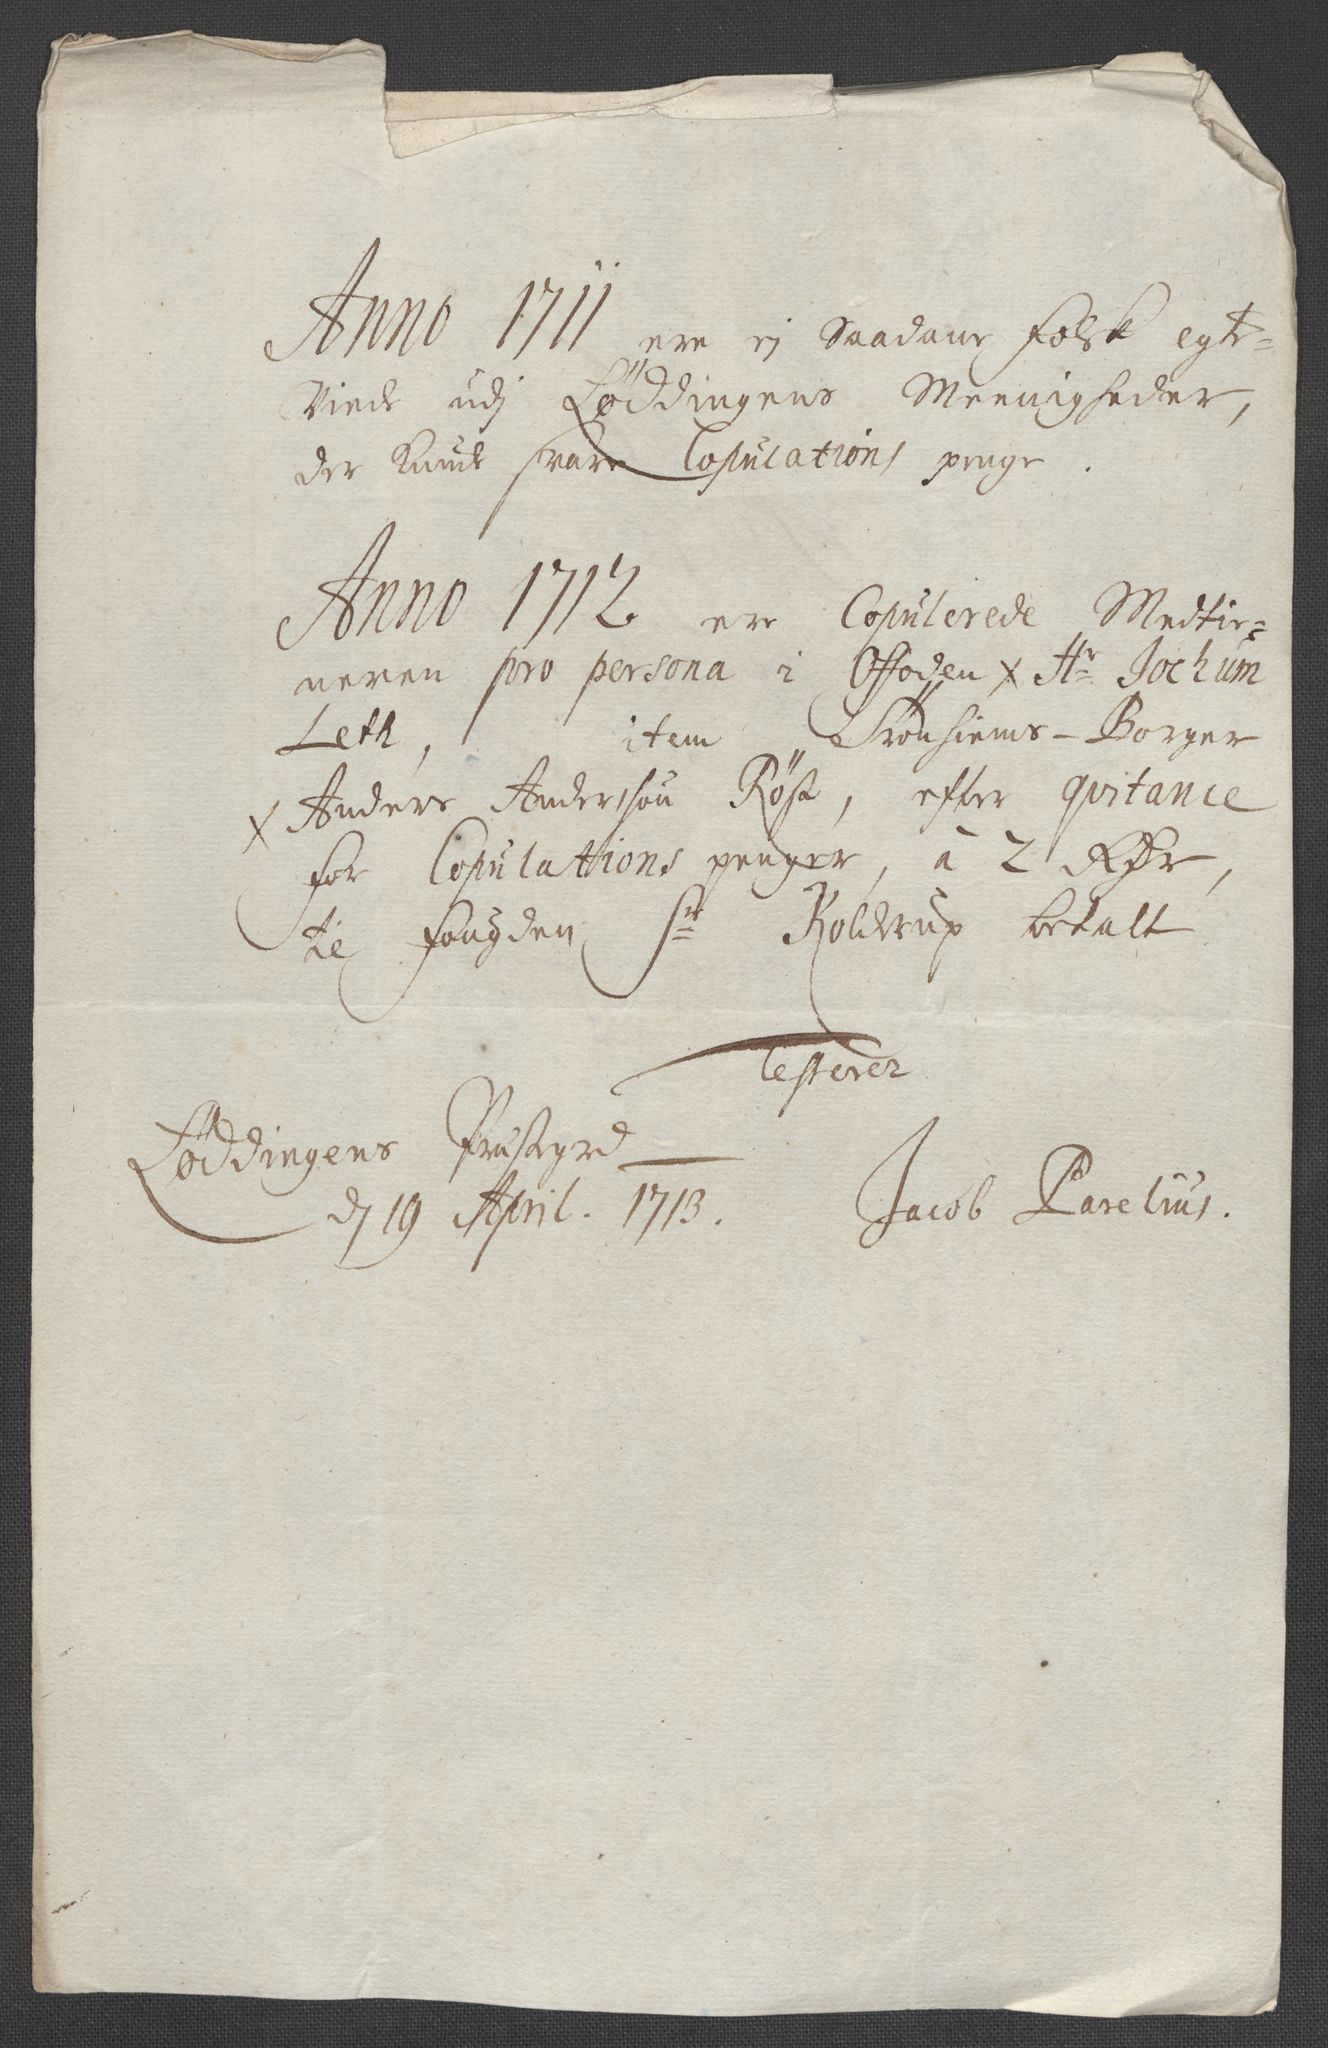 Anno 1711 ere ej Saadane Folck egte=
Viede udj Løddingens Meenigheder,
der kunde svare Copulations penge.
Anno 1712 ere Copulerede Medtie=
neren pro persona i Ofoden x Hr Jochum
Leth, item Trønhiems-Borger
x Anders Andersøn Røst, efter qvitance
for Copulations penger, à 2 Rdr,
til Fougden Sr Rolderup betalt
Testerer
Løddingens Præstegrd
d 19 April. 1713.
Jacob Parelius.